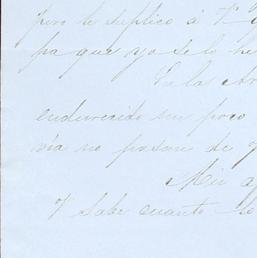 pero le suplico á V.
pa que yo se lo he
En la
endurecido un poco
vía no pasan de
Mis
V sabe cuanto lo